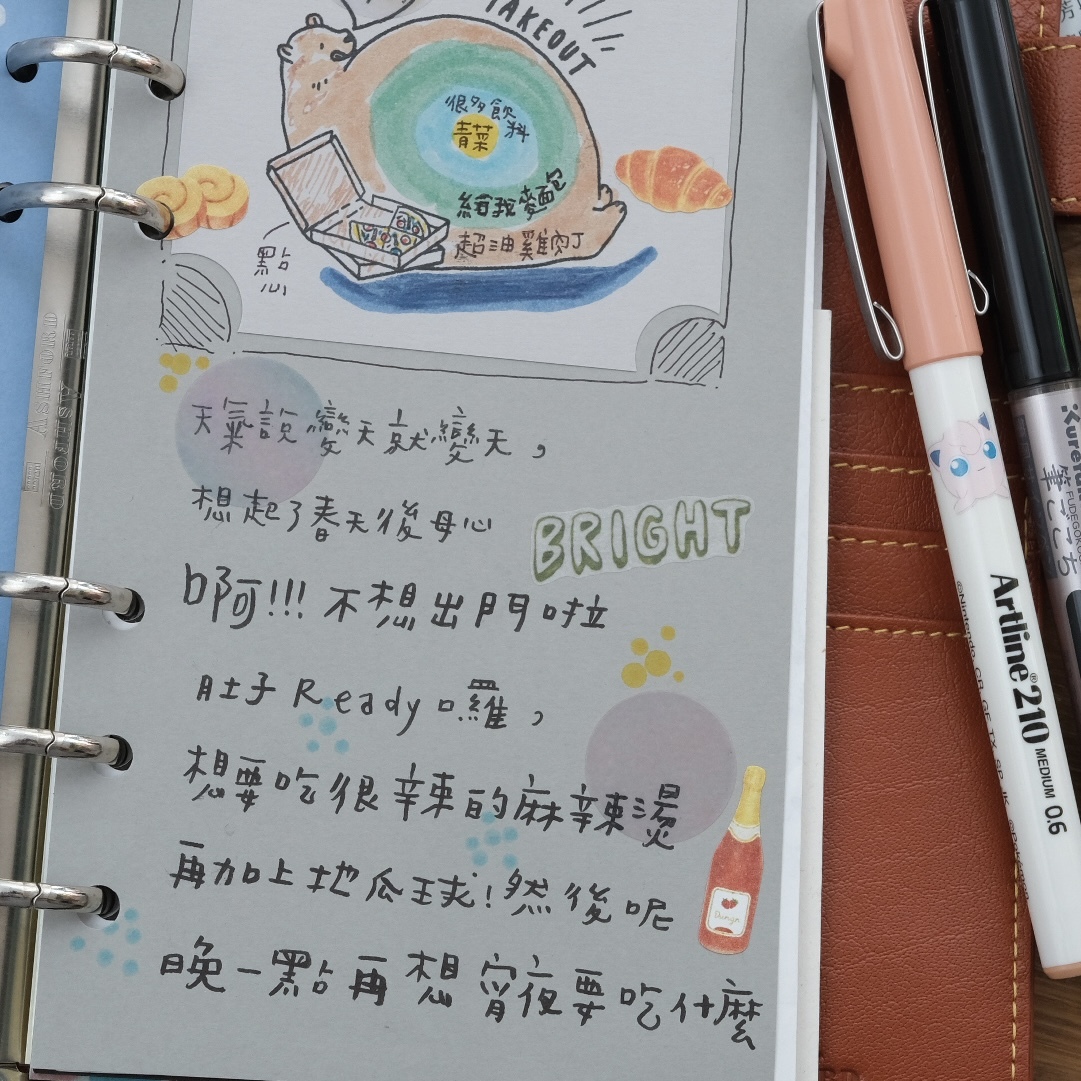 TAKEOUT
很多飲料
青菜
細我麵包
超油雞肉丁
點心
天氣說變天就變天，
想起了春天後母心
BRIGHT
啊!!! 不想出門啦
肚子 Ready 囉，
想要吃很辣的麻辣燙
再加上地瓜球!然後呢
晚一點再想宵夜要吃什麼
ASHFORD
ASHFORD
Artline® 210 MEDIUM 0.6
©Nintendo
Kuretake
筆ごこち
FUDEGOKO